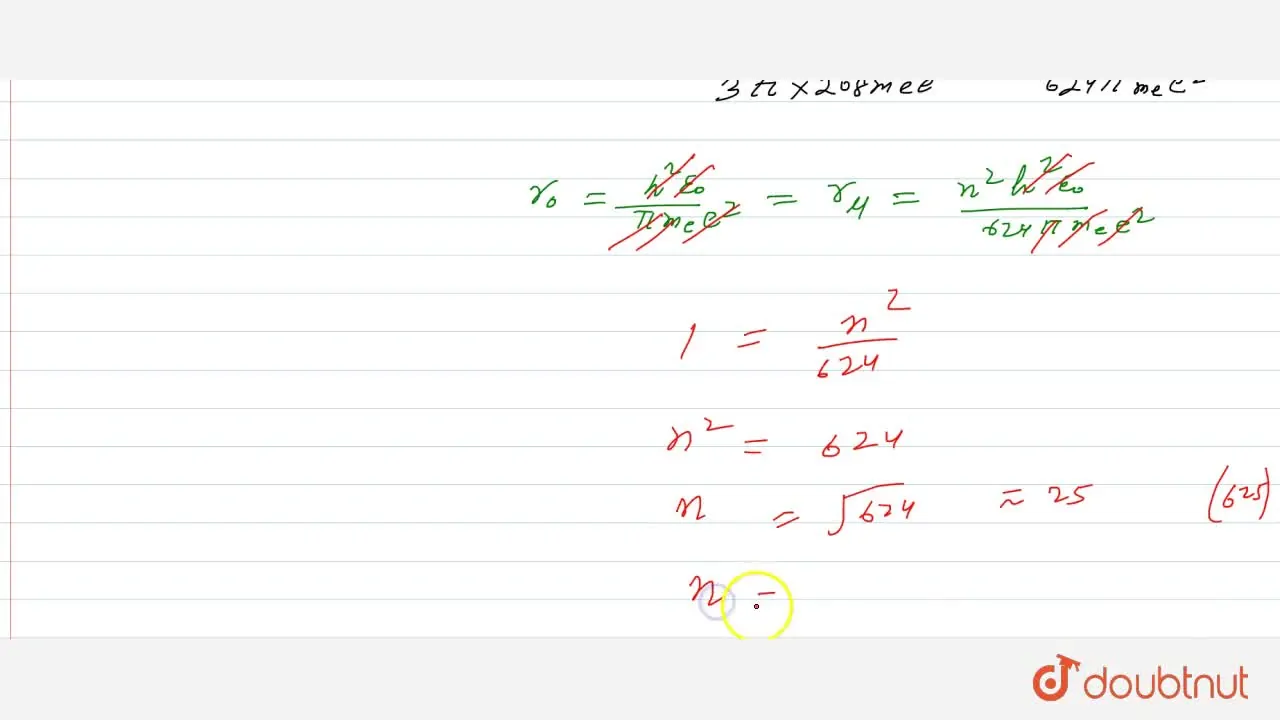 3π × 208 me e 624 π me e²
r₀ = h² ε₀ / π me e² = rμ = n² h² ε₀ / 624 π me e²
1 = n² / 624
n² = 624
n = √624 ≈ 25 (625)
n =
doubtnut